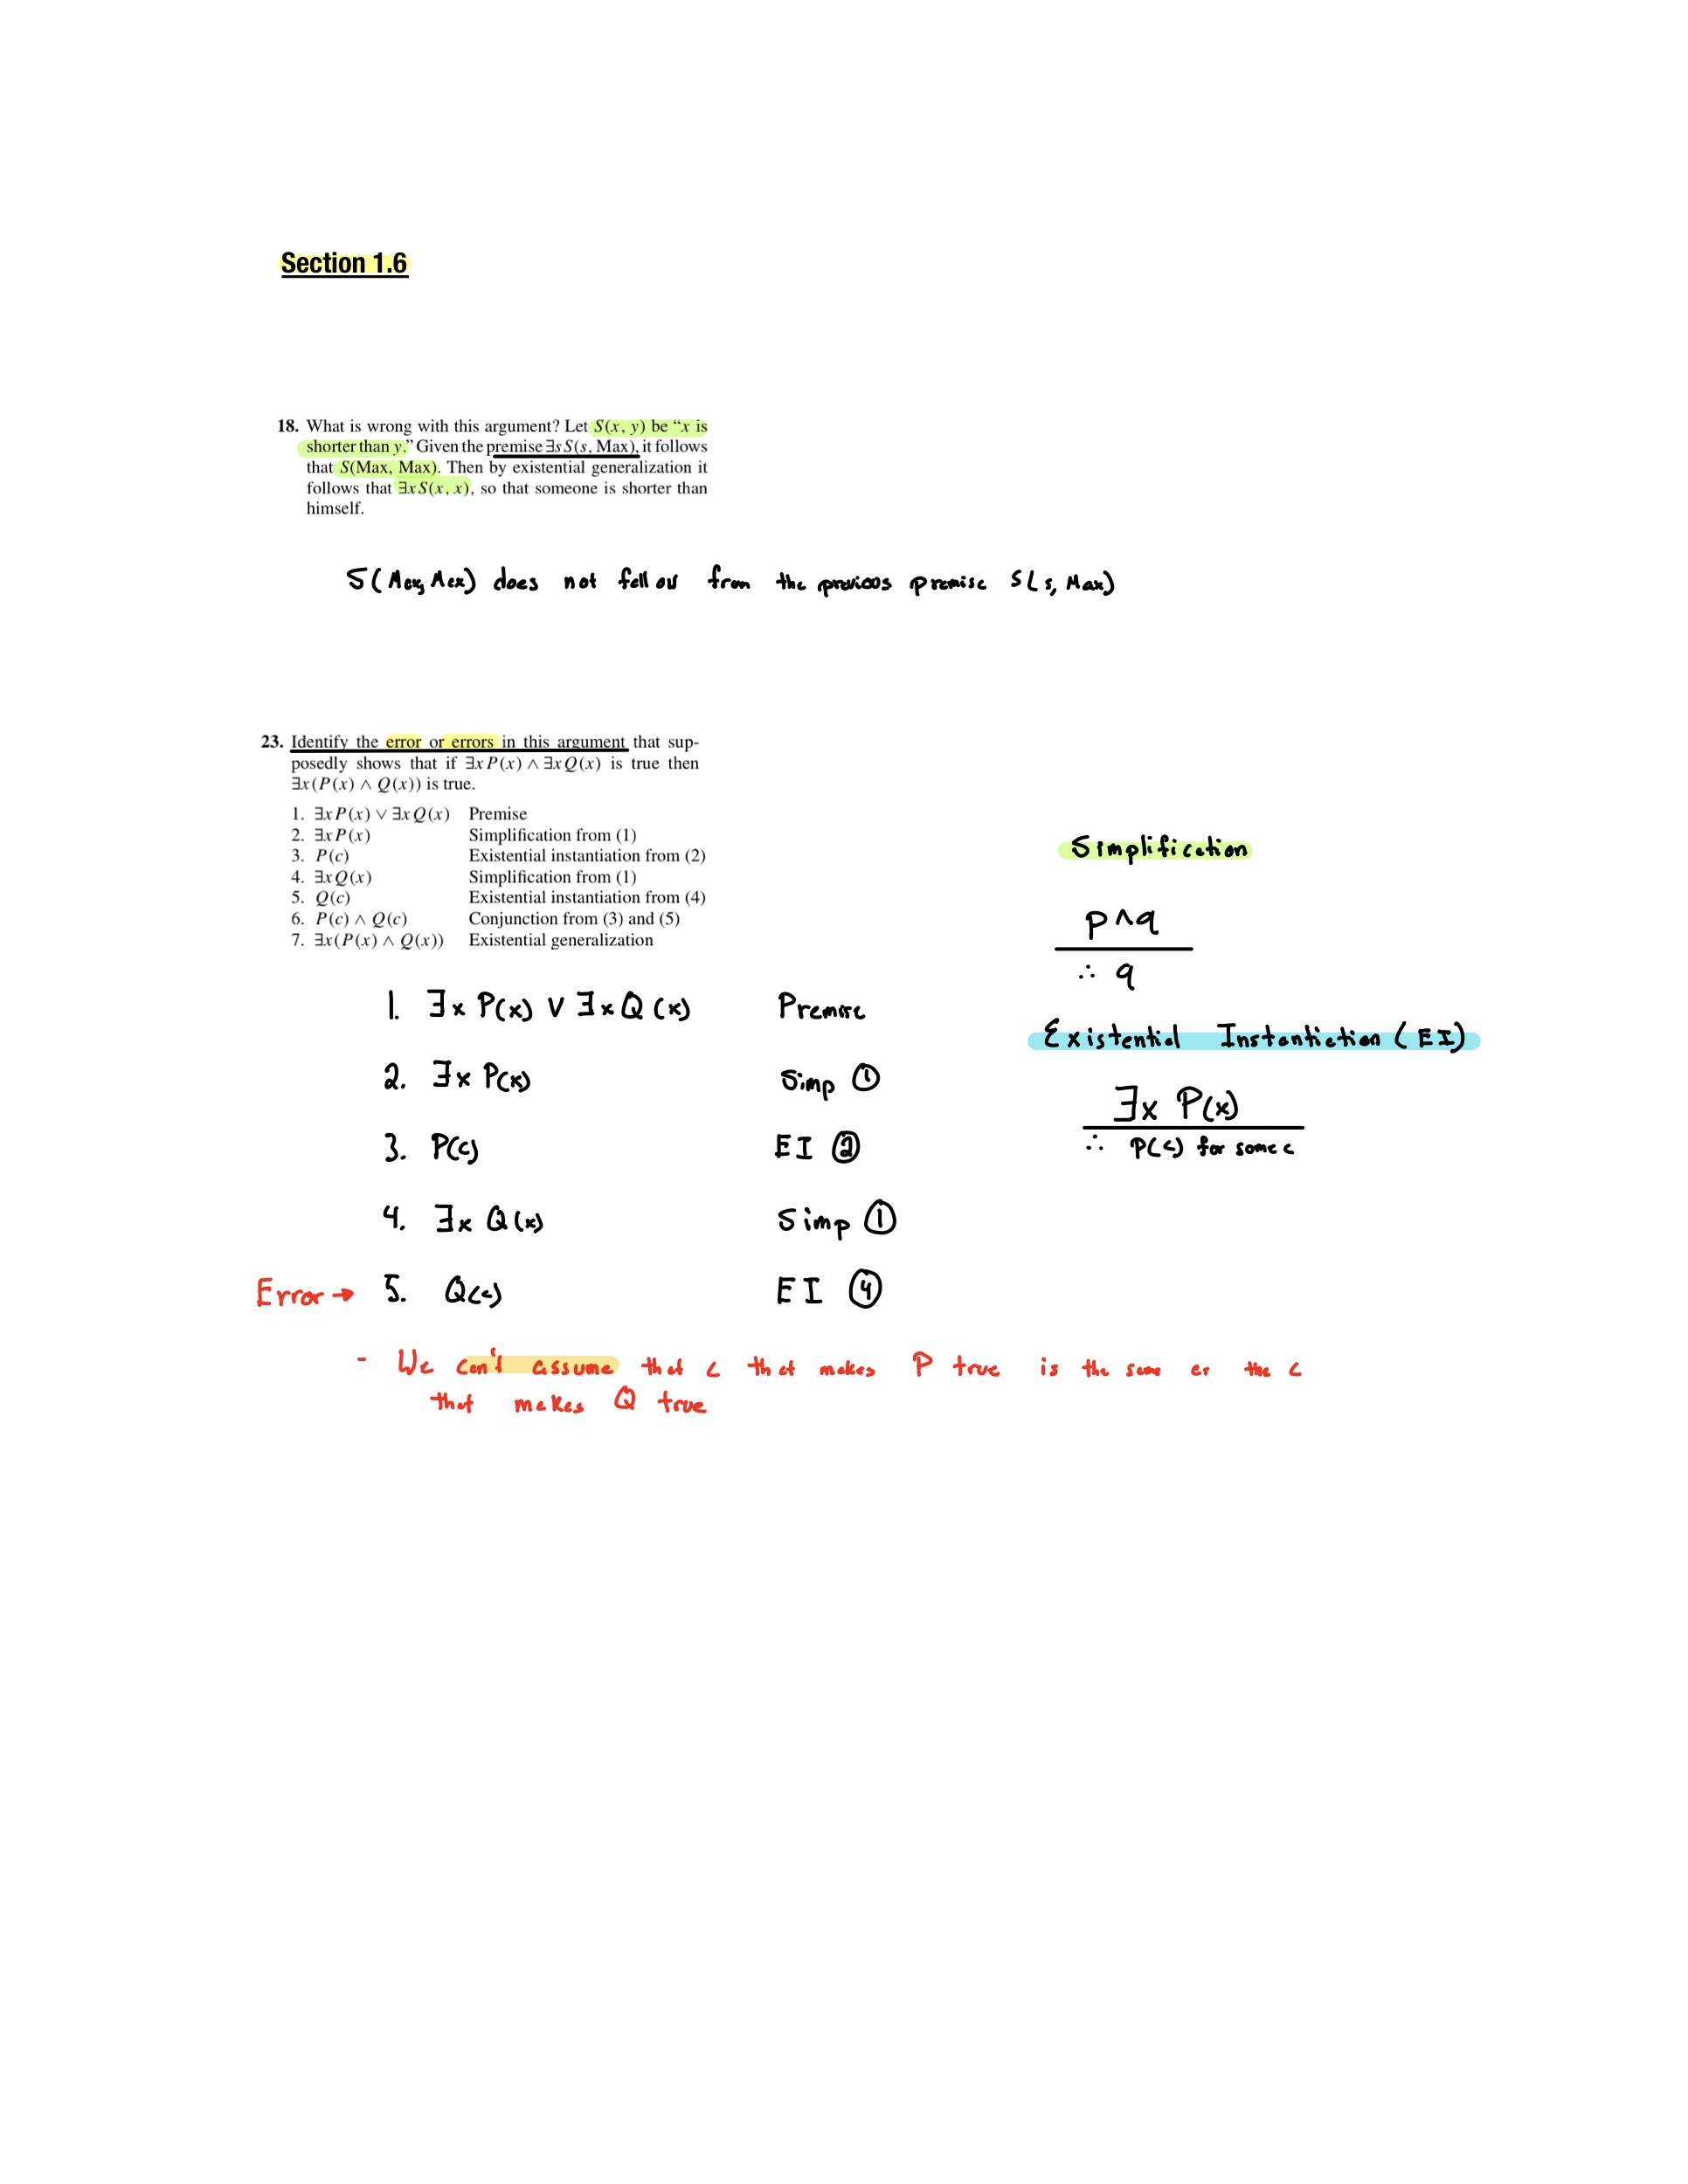 Section 1.6
18. What is wrong with this argument? Let S(x, y) be “x is
shorter than y.” Given the premise ∃s S(s, Max), it follows
that S(Max, Max). Then by existential generalization it
follows that ∃x S(x, x), so that someone is shorter than
himself.
S(Max, Max) does not follow from the previous premise S(s, Max)
23. Identify the error or errors in this argument that sup-
posedly shows that if ∃x P(x) ∧ ∃x Q(x) is true then
∃x(P(x) ∧ Q(x)) is true.
1. ∃x P(x) ∨ ∃x Q(x) Premise
2. ∃x P(x) Simplification from (1)
3. P(c) Existential instantiation from (2)
4. ∃x Q(x) Simplification from (1)
5. Q(c) Existential instantiation from (4)
6. P(c) ∧ Q(c) Conjunction from (3) and (5)
7. ∃x(P(x) ∧ Q(x)) Existential generalization
Simplification
p ∧ q
∴ q
Existential Instantiation (EI)
∃x P(x)
∴ P(c) for some c
1. ∃x P(x) ∨ ∃x Q(x) Premise
2. ∃x P(x) Simp ①
3. P(c) EI ②
4. ∃x Q(x) Simp ①
Error → 5. Q(c) EI ④
- We can't assume that c that makes P true is the same as the c
that makes Q true